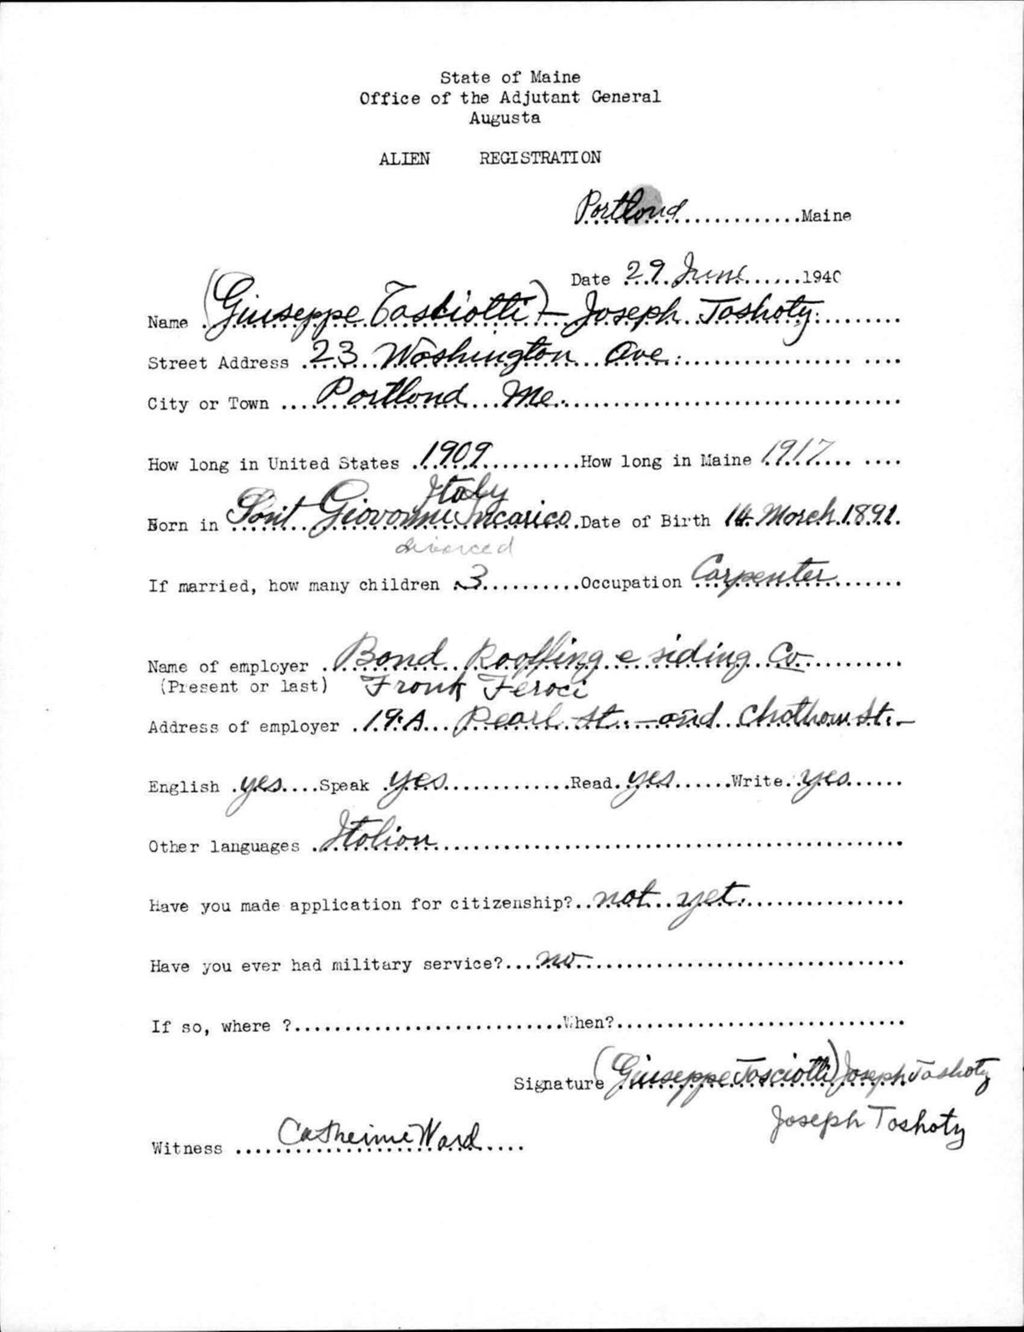 State of Maine
Office of the Adjutant General
Augusta
ALIEN REGISTRATION
Portland.............Maine
Date 29 June......1940
Name (Giuseppe Tasciotti) - Joseph Tashoty..........
Street Address 23 Washington Ave.
City or Town Portland Me.
How long in United States 1909..........How long in Maine 1917
Italy
Born in Giovanni Incarico. Date of Birth 14 March 1891.
divorced
If married, how many children 3...........Occupation Carpenter
Name of employer Bond Rooffing e siding Co.
(Present or last) Frank Feroci
Address of employer 19.A Pearl St. - and Chathow St. -
English yes....Speak yes..............Read yes......Write yes......
Other languages Italian
Have you made application for citizenship? not yet.
Have you ever had military service? no
If so, where ?............................When?..............................
Signature (Giuseppe Tasciotti) Joseph Tashoty
Joseph Tashoty
Witness Catherine Ward